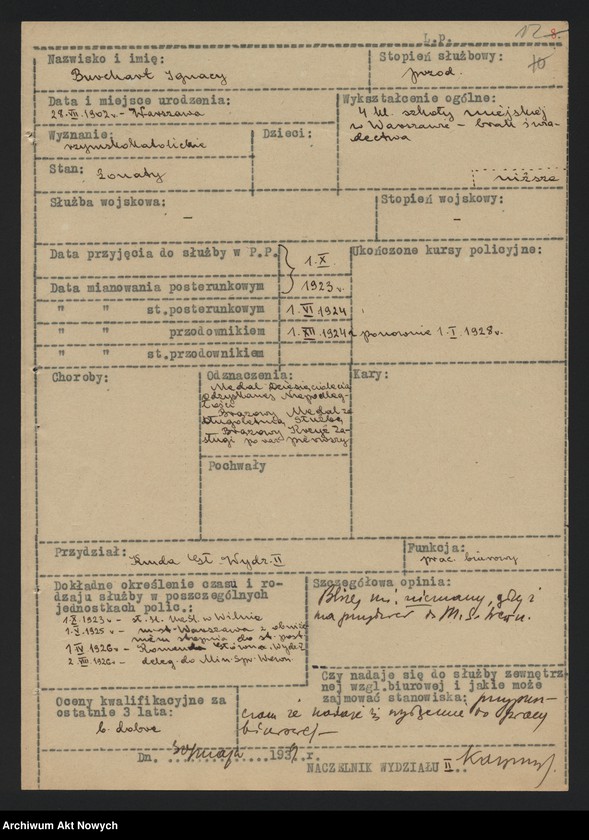 L.p.
12 8.
10
Nazwisko i imię:
Burchart Ignacy
Stopień służbowy:
przod.
Data i miejsce urodzenia:
28.VII.1902 r. - Warszawa
Wykształcenie ogólne:
4 kl. szkoły miejskiej
w Warszawie - brak świa-
dectwa
niższe
Wyznanie:
rzymskokatolickie
Dzieci:
Stan: żonaty
Służba wojskowa:
-
Stopień wojskowy:
-
Data przyjęcia do służby w P.P. 1.X
Data mianowania posterunkowym 1923 r.
" " st.posterunkowym 1.VI 1924
" " przodownikiem 1.XII 1924 r. ponownie 1.I 1928 r.
" " st.przodownikiem
Ukończone kursy policyjne:
Choroby:
Odznaczenia:
Medal Dziesięciolecia
Odzyskanej Niepodleg-
łości
Brązowy Medal za
Długoletnią Służbę
Brązowy Krzyż Za-
sługi po raz pierwszy
Kary:
Pochwały
Przydział: Kmda Gł. Wydz. II
Funkcja:
prac. biurowy
Dokładne określenie czasu i ro-
dzaju służby w poszczególnych
jednostkach polic.:
1.X.1923 r. - st. śl. w Wilnie
1.V.1925 r. - m. st. Warszawa z obniże
niem stopnia do st. post
1.IV 1926 r. - Komenda Główna Wydz.
2.VIII.1926 r. - deleg. do Min. Spr. Wewn
Szczegółowa opinia:
Bliżej mi nieznany, gdyż
ma przydział do M. S. Wewn.
Czy nadaje się do służby zewnętrz
nej wzgl.biurowej i jakie może
zajmować stanowiska: przypusz-
czam że nadaje się wyłącznie do pracy
biurowej -
Oceny kwalifikacyjne za
ostatnie 3 lata:
b. dobre
Dn. 30 maja 1939 r.
NACZELNIK WYDZIAŁU II
Archiwum Akt Nowych